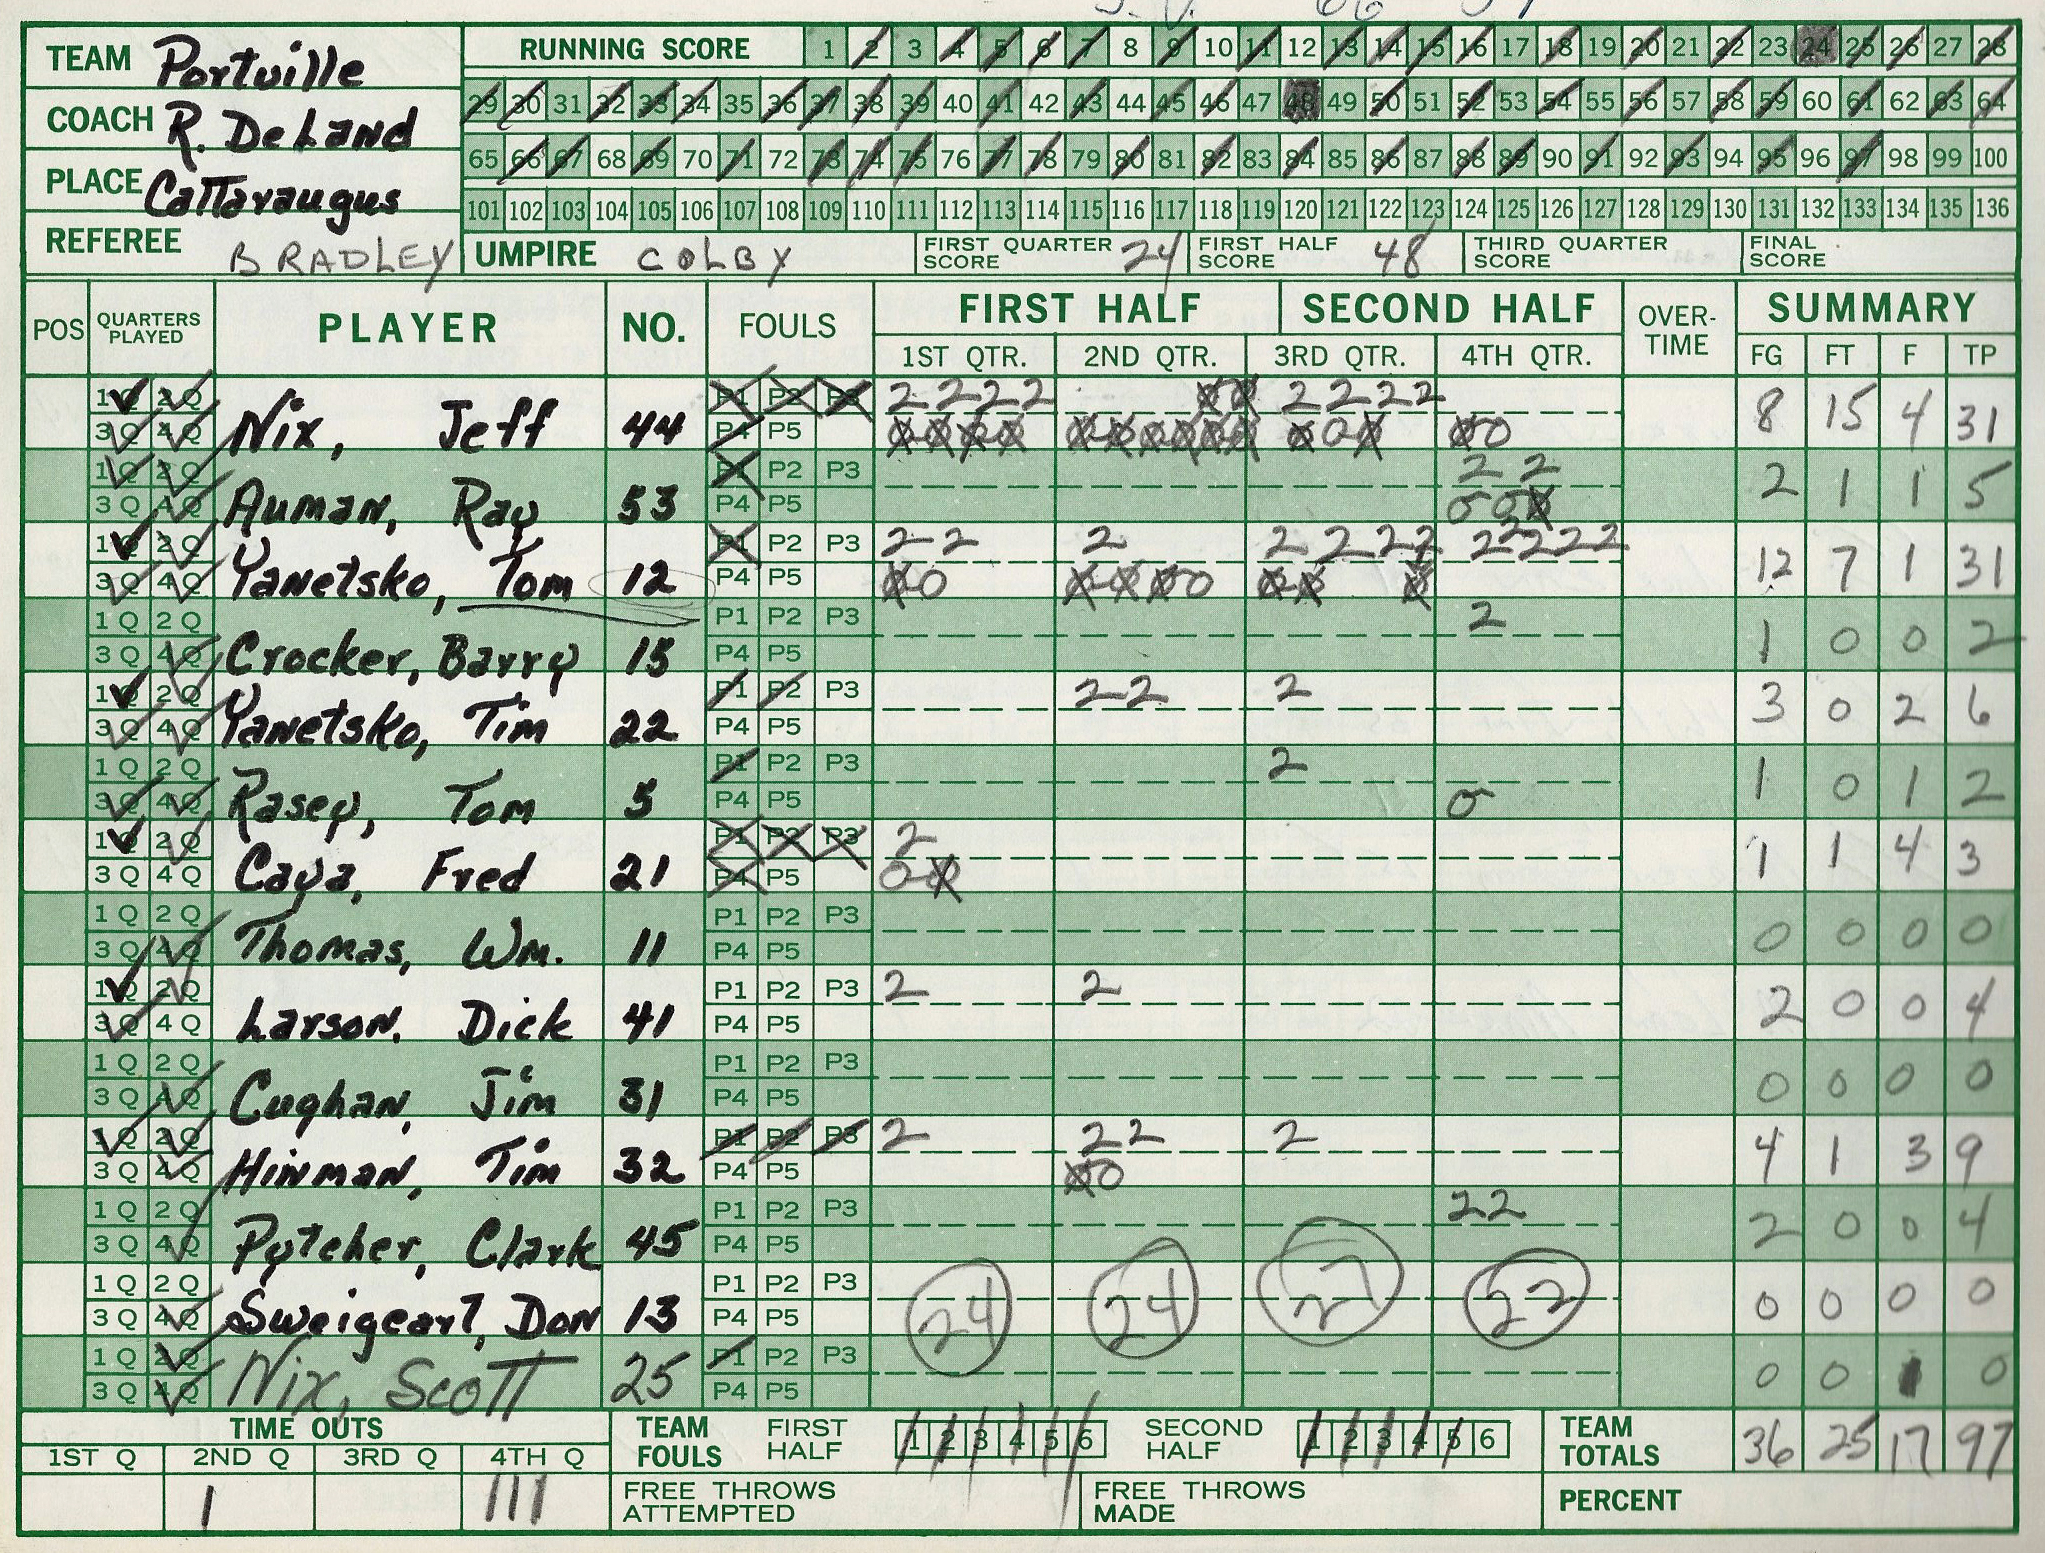 J.V. 66
TEAM Portville
RUNNING SCORE 1 2 3 4 5 6 7 8 9 10 11 12 13 14 15 16 17 18 19 20 21 22 23 24 25 26 27 28
COACH R. DeLand
29 30 31 32 33 34 35 36 37 38 39 40 41 42 43 44 45 46 47 48 49 50 51 52 53 54 55 56 57 58 59 60 61 62 63 64
65 66 67 68 69 70 71 72 73 74 75 76 77 78 79 80 81 82 83 84 85 86 87 88 89 90 91 92 93 94 95 96 97 98 99 100
PLACE Cattaraugus
101 102 103 104 105 106 107 108 109 110 111 112 113 114 115 116 117 118 119 120 121 122 123 124 125 126 127 128 129 130 131 132 133 134 135 136
REFEREE BRADLEY UMPIRE COLBY FIRST QUARTER SCORE 24 FIRST HALF SCORE 48 THIRD QUARTER SCORE FINAL SCORE
POS QUARTERS PLAYED PLAYER NO. FOULS FIRST HALF SECOND HALF OVER-TIME SUMMARY
1ST QTR. 2ND QTR. 3RD QTR. 4TH QTR. FG FT F TP
1Q 2Q P1 P2 P3 2 2 2 2 2 2 2 2
3Q 4Q Nix, Jeff 44 P4 P5 8 15 4 31
1Q 2Q P1 P2 P3 2 2
3Q 4Q Auman, Ray 53 P4 P5 2 1 1 5
1Q 2Q P1 P2 P3 2 2 2 2 2 2 2 2 2 2 2 2
3Q 4Q Yanetsko, Tom 12 P4 P5 12 7 1 31
1Q 2Q P1 P2 P3 2
3Q 4Q Crocker, Barry 15 P4 P5 1 0 0 2
1Q 2Q P1 P2 P3 2 2 2
3Q 4Q Yanetsko, Tim 22 P4 P5 3 0 2 6
1Q 2Q P1 P2 P3 2
3Q 4Q Rasey, Tom 5 P4 P5 0 1 0 1 2
1Q 2Q P1 P2 P3 2
3Q 4Q Caya, Fred 21 P4 P5 0 0 1 1 4 3
1Q 2Q P1 P2 P3
3Q 4Q Thomas, Wm. 11 P4 P5 0 0 0 0
1Q 2Q P1 P2 P3 2 2
3Q 4Q Larson, Dick 41 P4 P5 2 0 0 4
1Q 2Q P1 P2 P3
3Q 4Q Cughan, Jim 31 P4 P5 0 0 0 0
1Q 2Q P1 P2 P3 2 2 2 2
3Q 4Q Hinman, Tim 32 P4 P5 0 0 4 1 3 9
1Q 2Q P1 P2 P3 2 2
3Q 4Q Pytcher, Clark 45 P4 P5 2 0 0 4
1Q 2Q P1 P2 P3
3Q 4Q Sweigeart, Don 13 P4 P5 24 24 27 22 0 0 0 0
1Q 2Q P1 P2 P3
3Q 4Q Nix, Scott 25 P4 P5 0 0 1 0
TIME OUTS TEAM FOULS FIRST HALF 1 2 3 4 5 6 SECOND HALF 1 2 3 4 5 6 TEAM TOTALS 36 25 17 97
1ST Q 2ND Q 3RD Q 4TH Q
I III FREE THROWS ATTEMPTED FREE THROWS MADE PERCENT